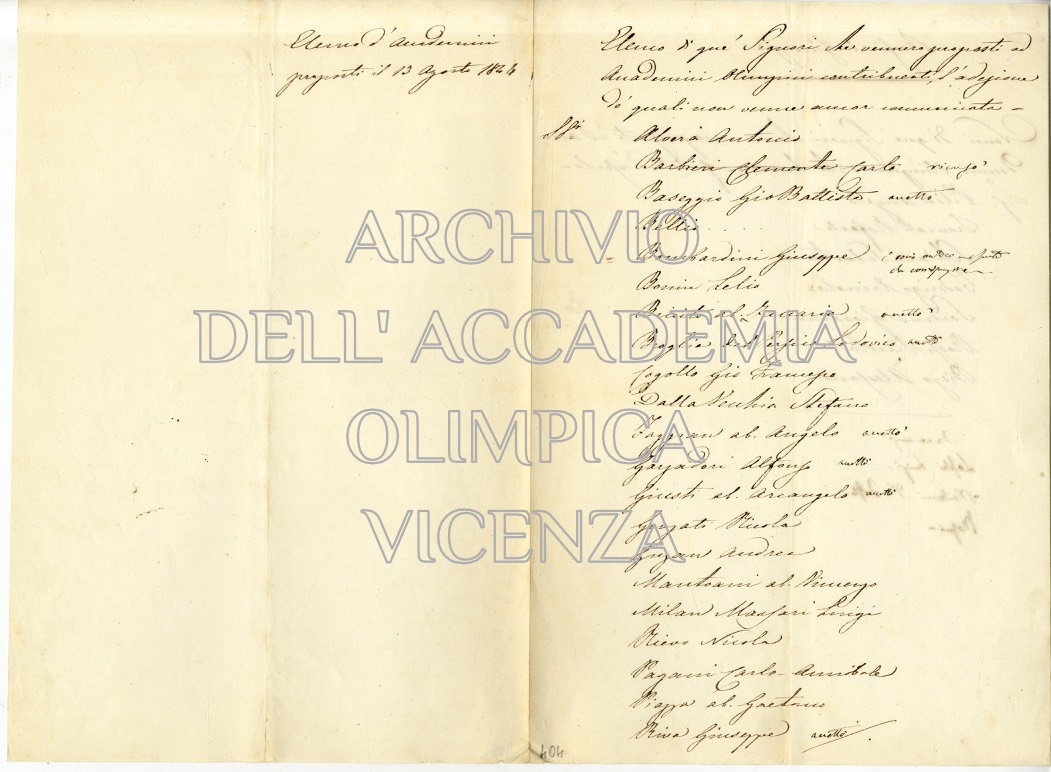 Elenco d'Accademici
proposti il 13 Agosto 1844
Elenco di que' Signori che vennero proposti ad
Accademici Olimpici contribuenti, l'adesione
de' quali non venne ancor comunicata -
SSri Alverà Antonio
Barbieri Clemente Carlo rinunziò
Baseggio Gio Battista accettò
Billis . . . .
Bombardini Giuseppe
Bonin Lelio
ab. Zaccaria accettò
Broglia Lodovico accettò
Cogollo Gio Francesco
Dalla Vecchia Stefano
Faggian ab. Angelo accettò
Garzadori Alfonso accettò
Giusti ab. Arcangelo accettò
Grigati Nicola
Guzan Andrea
Mantoani ab. Vincenzo
Milan Massari Luigi
Nievo Nicola
Pagani Carlo Annibale
Piazza ab. Gaetano
Riva Giuseppe accettò
404
ARCHIVIO
DELL' ACCADEMIA
OLIMPICA
VICENZA